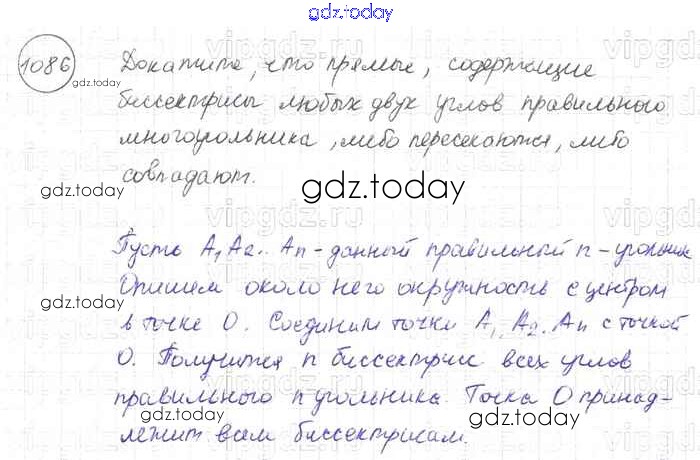 gdz.today
1086
Докажите, что прямые, содержащие
биссектрисы любых двух углов правильного
многоугольника, либо пересекаются, либо
совпадают.
gdz.today
gdz.today
Пусть A₁A₂.. Aп - данный правильный п-угольник
Опишем около него окружность с центром
gdz.today
в точке О. Соединим точки A₁, A₂.. Aп с точкой
О. Получится п биссектрис всех углов
правильного п угольника. Точка О принад-
лежит всем биссектрисам.
gdz.today
gdz.today